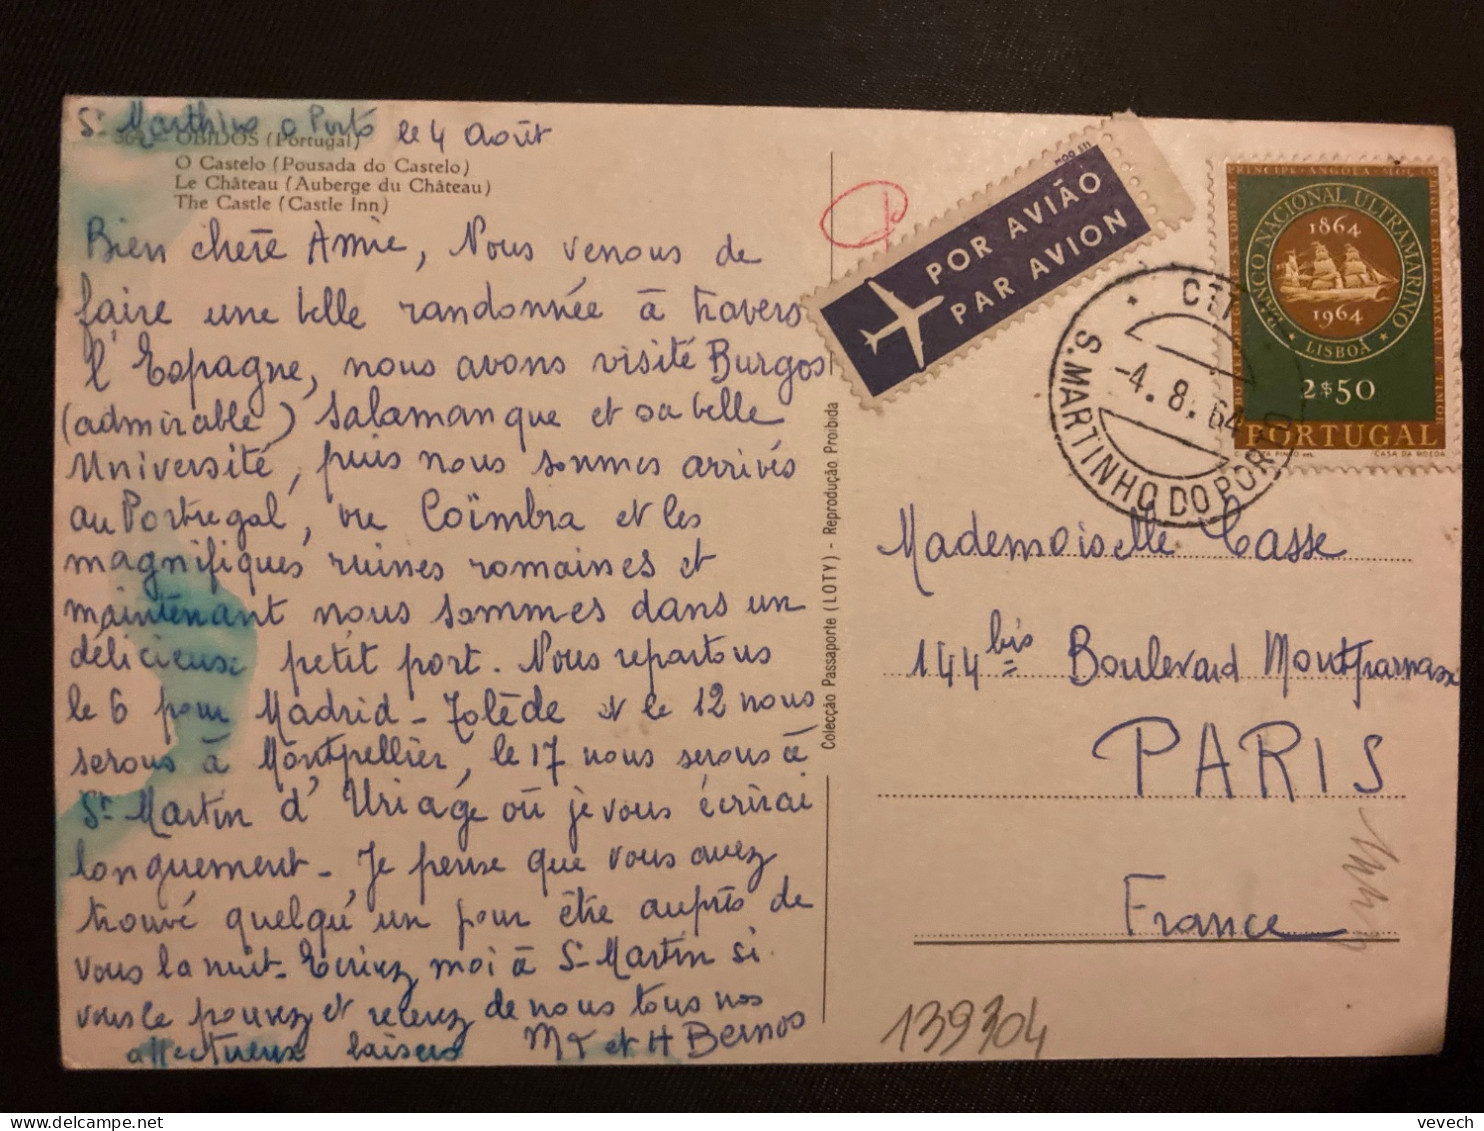 St Marthino o Porto le 4 Août
OBIDOS (Portugal)
O Castelo (Pousada do Castelo)
Le Château (Auberge du Château)
The Castle (Castle Inn)
Bien chère Amie, Nous venons de
faire une belle randonnée à travers
l'Espagne, nous avons visité Burgos
(admirable) Salamanque et sa belle
Université, puis nous sommes arrivés
au Portugal, vu Coïmbra et les
magnifiques ruines romaines et
maintenant nous sommes dans un
délicieux petit port. Nous repartons
le 6 pour Madrid - Tolède et le 12 nous
serons à Montpellier, le 17 nous serons à
St Martin d'Uriage où je vous écrirai
longuement - Je pense que vous avez
trouvé quelqu'un pour être auprès de
vous la nuit - Ecrivez moi à St Martin si
vous le pouvez et recevez de nous tous nos
affectueux baisers M et H Bernos
Colecção Passaporte (LOTY) - Reprodução Proibida
POR AVIÃO
PAR AVION
BANCO NACIONAL ULTRAMARINO
1864
1964
LISBOA
2$50
PORTUGAL
CASA DA MOEDA
S. MARTINHO DO PORTO
-4. 8. 64
Mademoiselle Casse
144 bis Boulevard Montparnasse
PARIS
France
139304
vevech